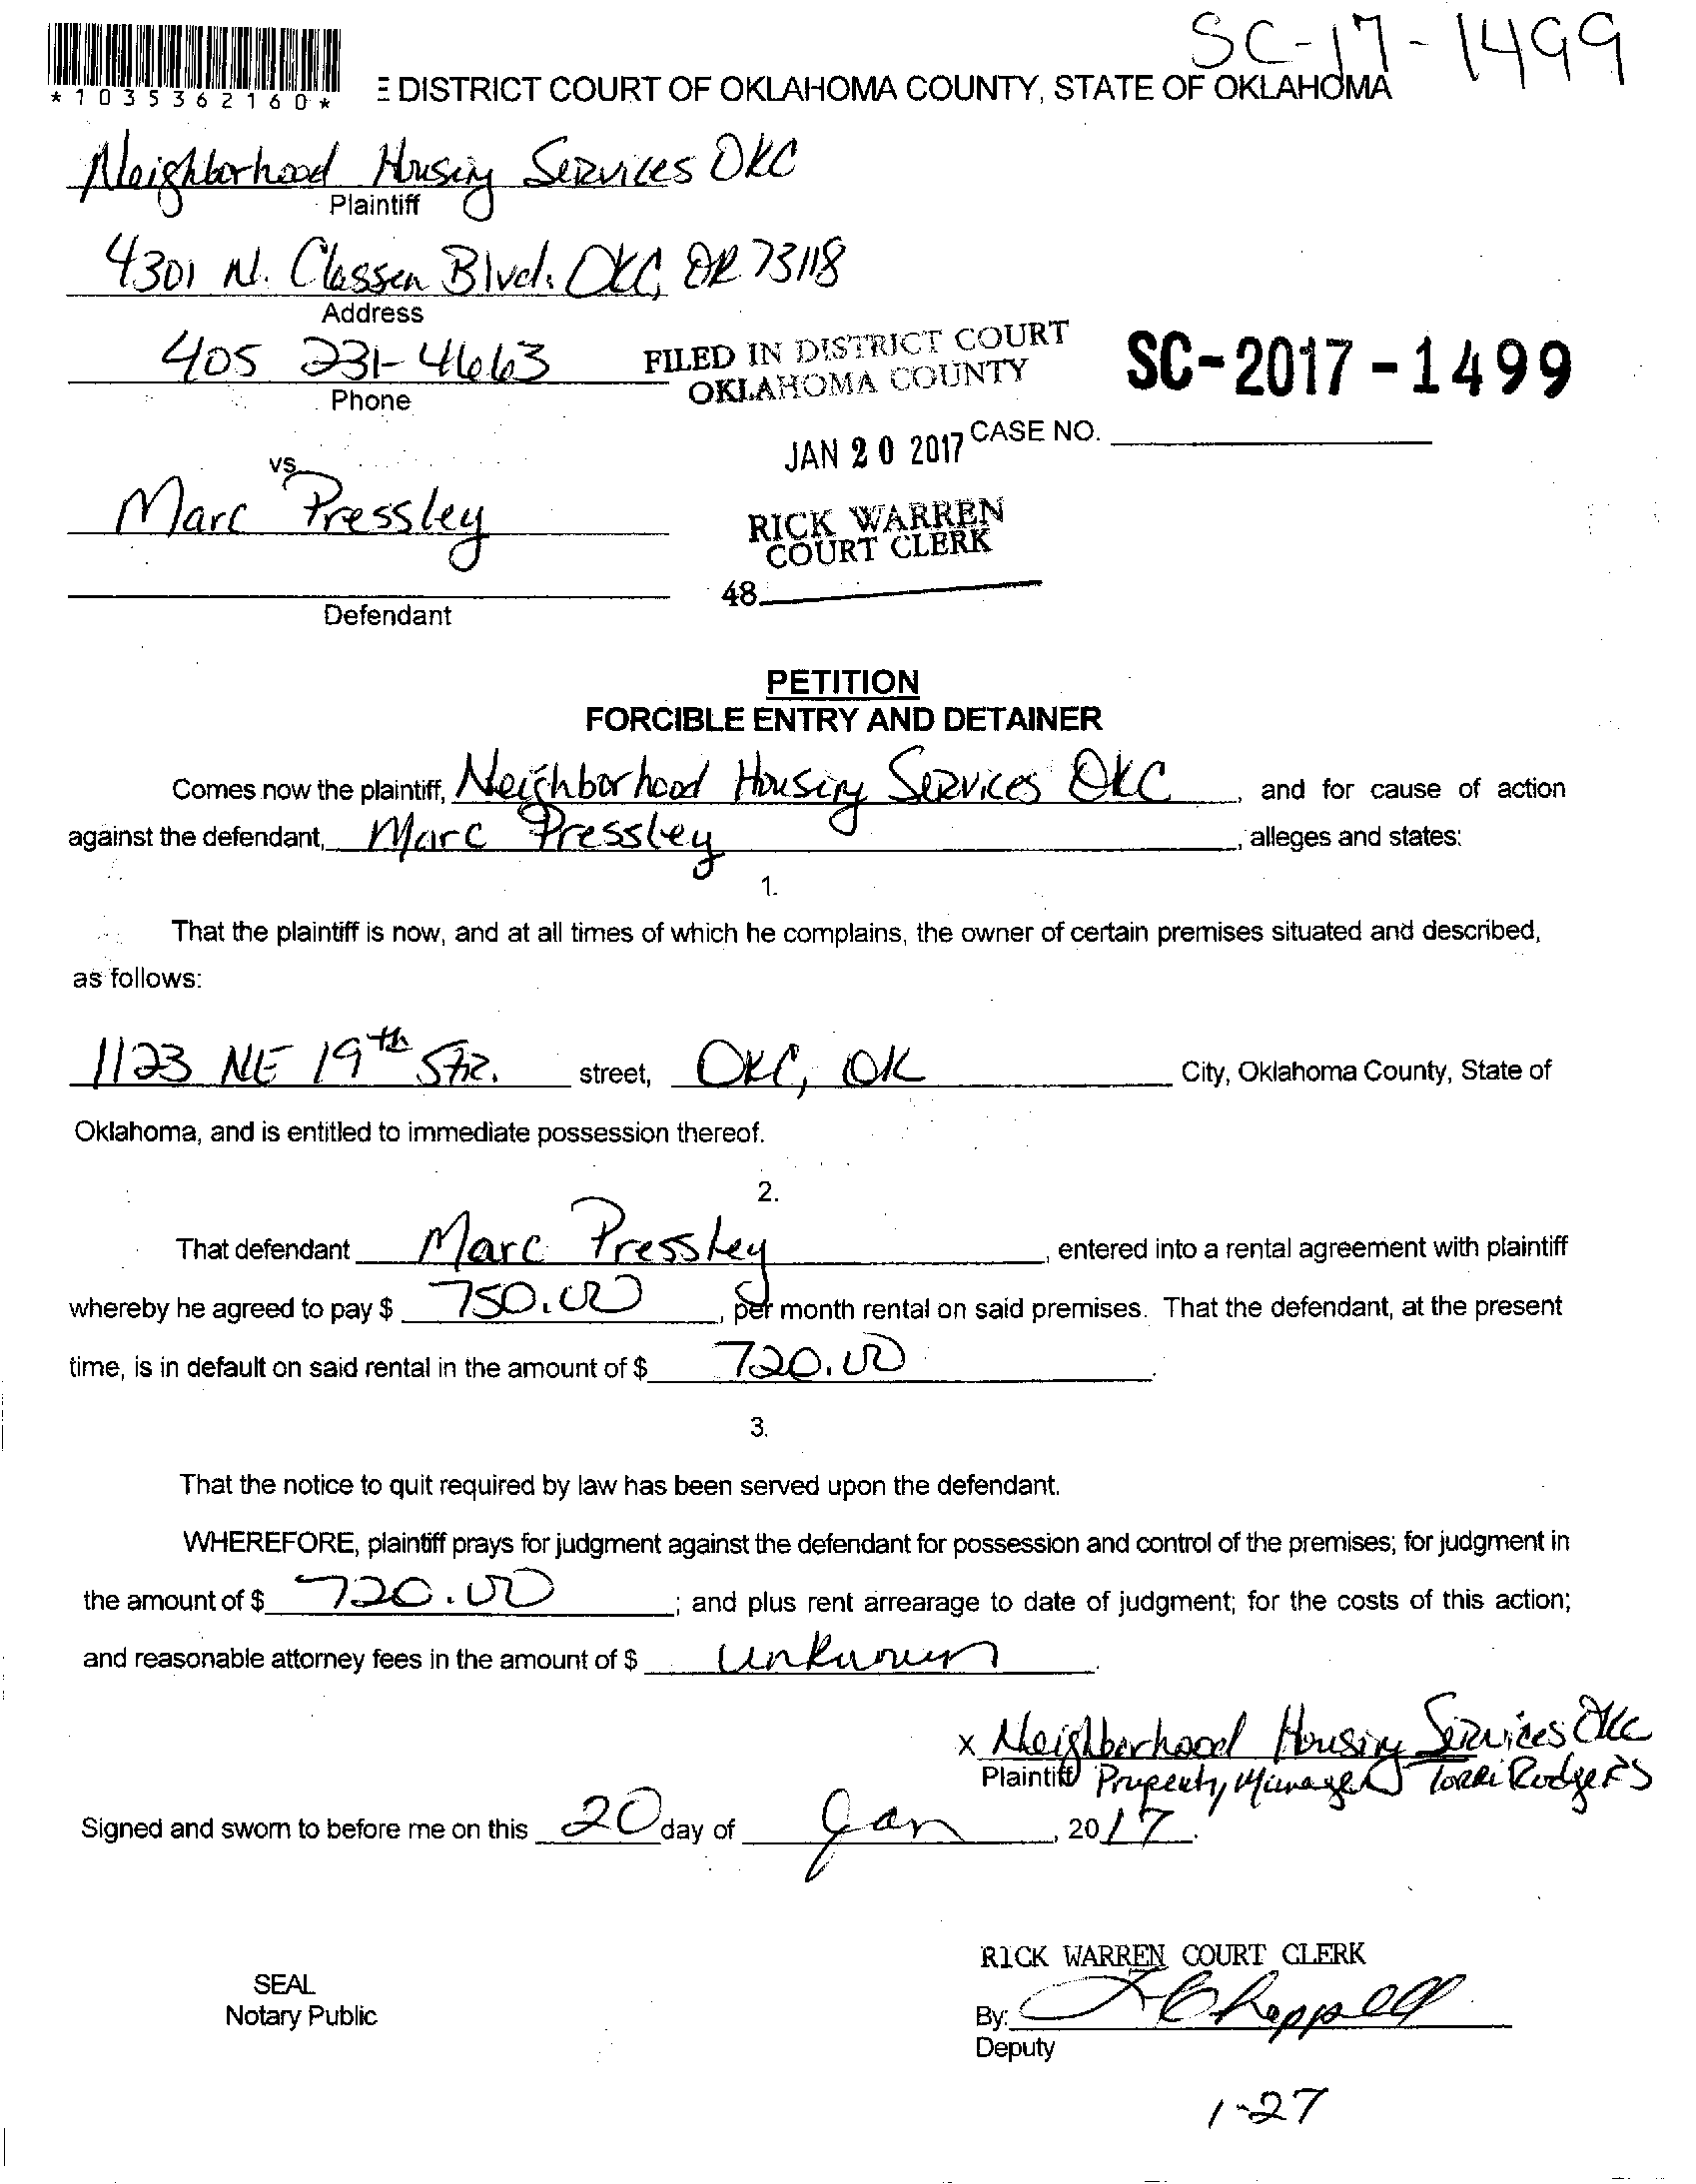 SC-17-1499
*1035362160*
E DISTRICT COURT OF OKLAHOMA COUNTY, STATE OF OKLAHOMA
Neighborhood Housing Services OKC
Plaintiff
4301 N. Classen Blvd. OKC, OK 73118
Address
405 231-4663
Phone
FILED IN DISTRICT COURT
OKLAHOMA COUNTY
SC-2017-1499
JAN 20 2017
CASE NO.
vs.
Marc Pressley
RICK WARREN
COURT CLERK
48
Defendant
PETITION
FORCIBLE ENTRY AND DETAINER
Comes now the plaintiff, Neighborhood Housing Services OKC, and for cause of action
against the defendant, Marc Pressley, alleges and states:
1.
That the plaintiff is now, and at all times of which he complains, the owner of certain premises situated and described,
as follows:
1123 NE 19th Str. street, OKC, OK City, Oklahoma County, State of
Oklahoma, and is entitled to immediate possession thereof.
2.
That defendant Marc Pressley, entered into a rental agreement with plaintiff
whereby he agreed to pay $ 750.00, per month rental on said premises. That the defendant, at the present
time, is in default on said rental in the amount of $ 720.00.
3.
That the notice to quit required by law has been served upon the defendant.
WHEREFORE, plaintiff prays for judgment against the defendant for possession and control of the premises; for judgment in
the amount of $ 720.00; and plus rent arrearage to date of judgment; for the costs of this action;
and reasonable attorney fees in the amount of $ unknown.
x Neighborhood Housing Services OKC
Plaintiff Property Manager Torri Rodgers
Signed and sworn to before me on this 20 day of Jan, 2017.
RICK WARREN COURT CLERK
SEAL
Notary Public
By: Chappell
Deputy
1-27